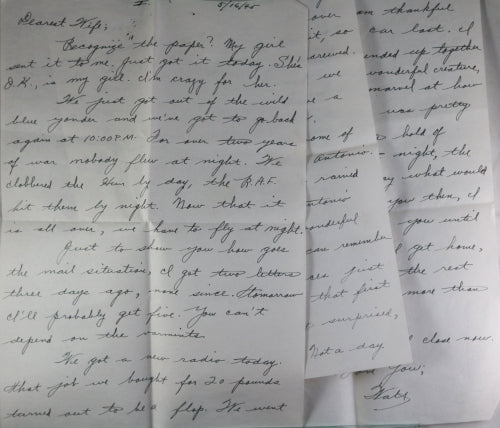 I.
5/16/45
Dearest Wife;
Recognize the paper? My girl
sent it to me. Just got it today. She's
O.K., is my girl. I'm crazy for her.
We just got out of the wild
blue yonder and we've got to go back
again at 10:00 P.M. For over two years
of war nobody flew at night. We
clobbered the Hun by day, the R.A.F.
hit them by night. Now that it
is all over, we have to fly at night.
Just to show you how goes
the mail situation, I got two letters
three days ago, none since. Tomorrow
I'll probably get five. You can't
depend on the varmints.
We got a new radio today.
That job we bought for 20 pounds
turned out to be a flop. We went
over
it, so
we
a
some of
Antonio.
rained
Antonio
wonderful
can remember
just
that first
surprised,
Not a day
am thankful
car lost. I
ended up together
wonderful creature,
marvel at how
was pretty
hold of
night, the
what would
you then, I
you until
I get home,
the rest
more than
close now.
You;